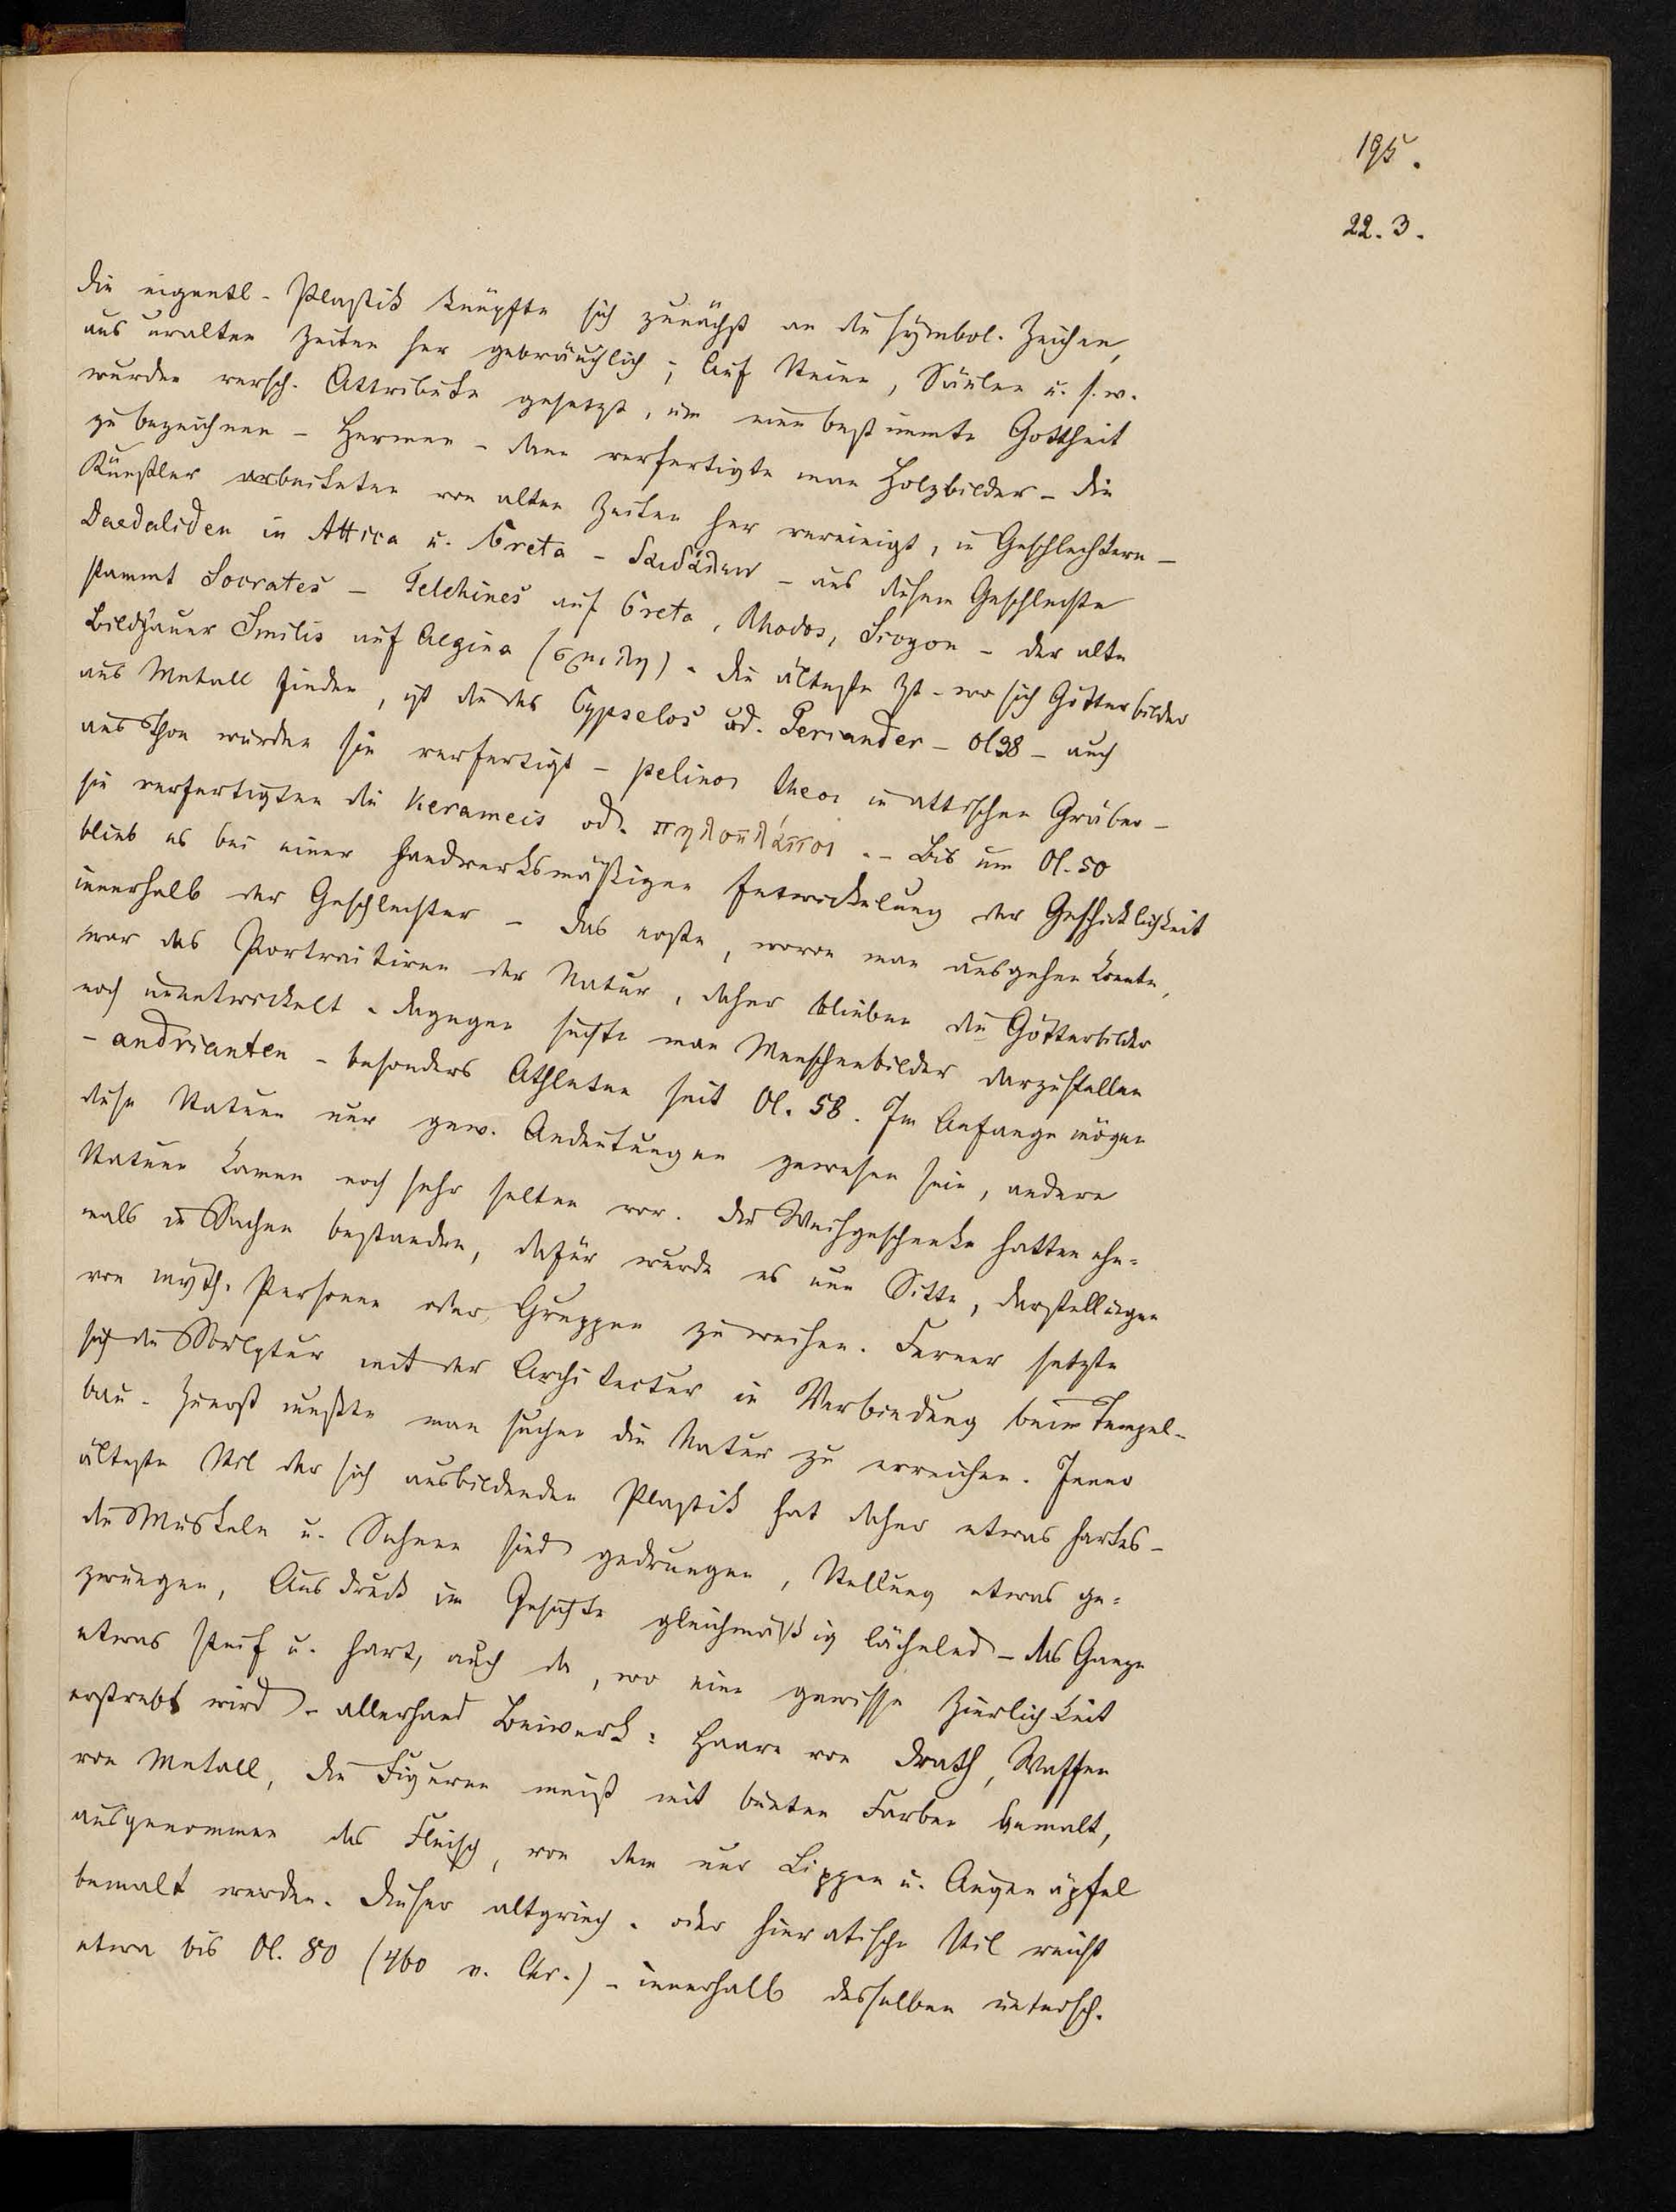 195.
22. 3.
die eigentl. Plastik knüpfte sich zunächst an die symbol. Zeichen,
aus uralten Zeiten her gebräuchlich; auf Steine, Säulen u. s. w.
wurden versch. Attribute gesetzt, um eine bestimmte Gottheit
zu bezeichnen – Hermen – dann verfertigte man Holzbilder – die
Künstler arbeiteten von alten Zeiten her vereinigt, in Geschlechtern –
Daedaliden in Attica u. Creta – δαιδάλλειν – aus diesem Geschlechte
stammt Socrates – Telchines auf Creta, Rhodos, Sicyon – der alte
Bildhauer Smilis auf Aegina (σμίλη) – die älteste Zt. wo sich Götterbilder
aus Metall finden, ist die des Cypselos od. Periander – Ol 38 – auch
aus Thon wurden sie verfertigt – pelinoi theoi in attischen Gräber –
sie verfertigten die Kerameis od. πηλοπλάσται. – Bis um Ol. 50
blieb es bei einer handwerksmäßigen Entwickelung der Geschicklichkeit
innerhalb der Geschlechter – das erste, wovon man ausgehen konnte,
war das Portraitiren der Natur, daher blieben die Götterbilder
noch unentwickelt – dagegen suchte man Menschenbilder darzustellen
– andrianten – besonders Athleten seit Ol. 58. Im Anfange mögen
diese Statuen nur gew. Andeutungen gewesen sein, andere
Statuen kamen noch sehr selten vor. Die Weihgeschenke hatten ehe-
mals in Sachen bestanden, dafür wurde es nun Sitte, Darstellungen
von myth. Personen oder Gruppen zu weihen. Ferner setzte
sich die Sculptur mit der Architectur in Verbindung beim Tempel-
bau. Zuerst mußte man suchen die Natur zu erreichen. Jener
älteste Stil der sich ausbildenden Plastik hat daher etwas hartes –
die Muskeln u. Sehnen sind gedrungen, Stellung etwas ge-
zwungen, Ausdruck im Gesichte gleichmäßig lächelnd – das Ganze
etwas steif u. hart, auch da, wo eine gewisse Zierlichkeit
erstrebt wird – allerhand Beiwerk: Haare von Drath, Waffen
von Metall, die Figuren meist mit bunten Farben bemalt,
ausgenommen das Fleisch, von dem nur Lippen u. Augenäpfel
bemalt werden. Dieser altgriech. oder hieratische Stil reicht
etwa bis Ol. 80 (460 v. Chr.) – innerhalb desselben untersch.